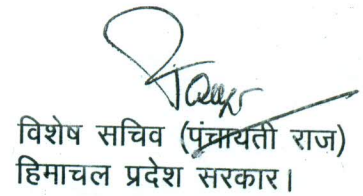 विशेष सचिव (पंचायती राज)
हिमाचल प्रदेश सरकार।